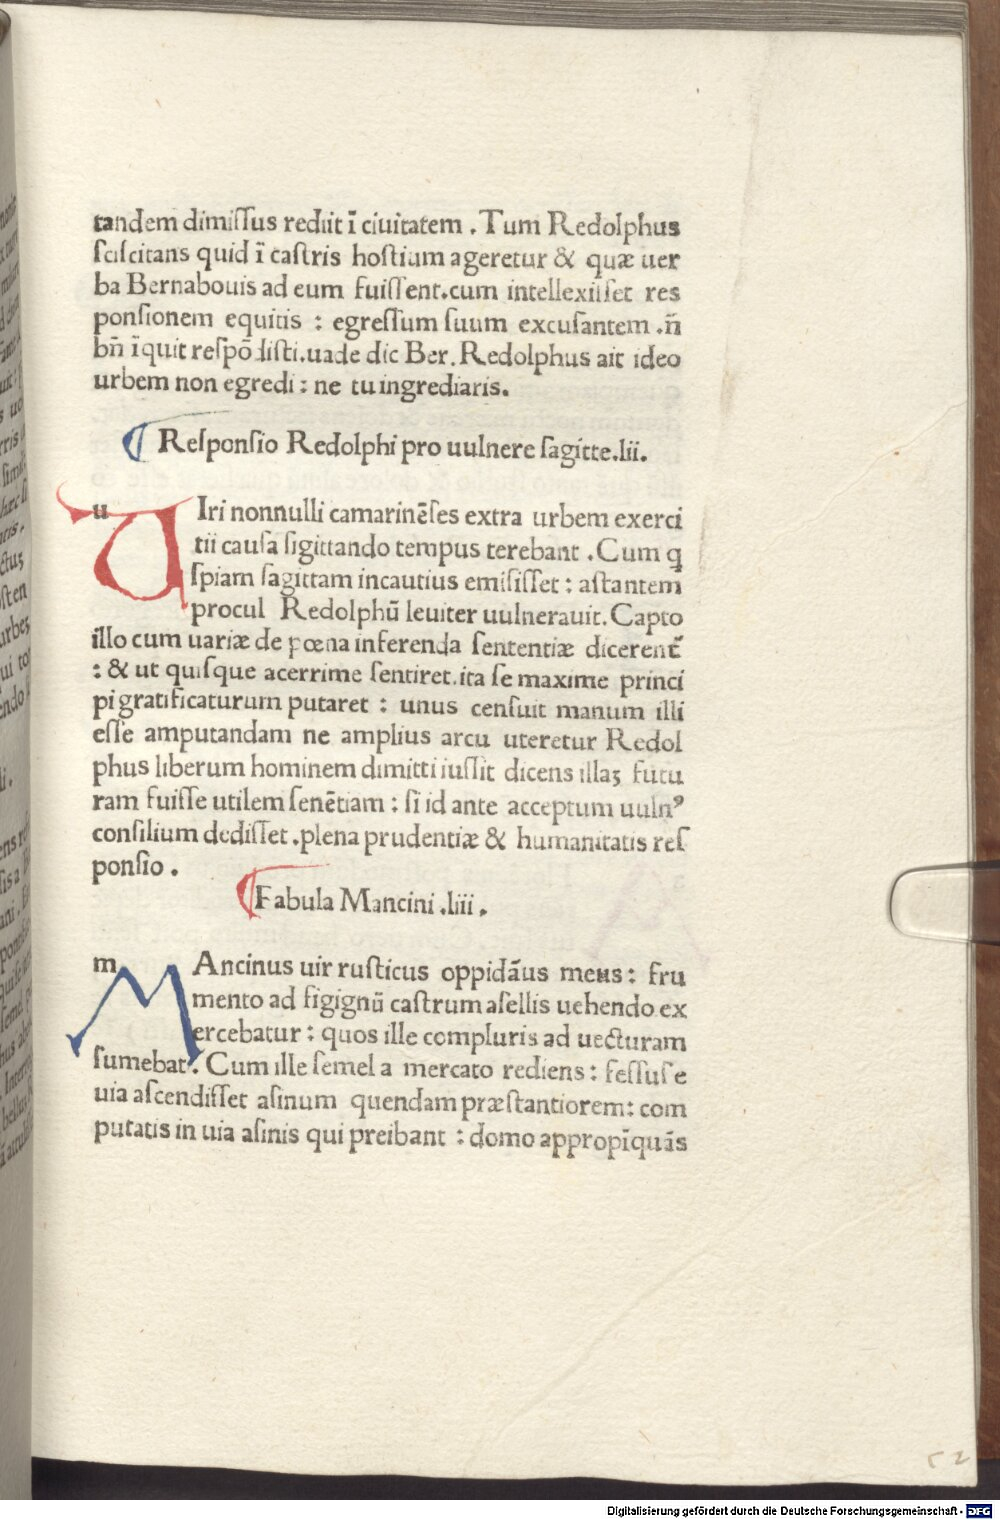 tandem dimiſſus rediit ī ciuitatem . Tum Redolphus
ſciſcitans quid ī caſtris hoſtium ageretur & quæ uer
ba Bernabouis ad eum fuiſſent.cum intellexiſſet res
ponſionem equitis : egreſſum ſuum excuſantem .n̄
bn̄ īquit reſpōdiſti.uade dic Ber. Redolphus ait ideo
urbem non egredi : ne tu ingrediaris.
¶ Reſponſio Redolphi pro uulnere ſagitte.lii.
u
UIri nonnulli camarinēſes extra urbem exerci
tii cauſa ſigittando tempus terebant . Cum q
ſpiam ſagittam incautius emiſiſſet : aſtantem
procul Redolphū leuiter uulnerauit. Capto
illo cum uariæ de pœna inferenda ſententiæ dicerent̄
: & ut quiſque acerrime ſentiret.ita ſe maxime princi
pi gratificaturum putaret : unus cenſuit manum illi
eſſe amputandam ne amplius arcu uteretur Redol
phus liberum hominem dimitti iuſſit dicens illaꝫ futu
ram fuiſſe utilem ſenētiam : ſi id ante acceptum uulnꝰ
conſilium dediſſet .plena prudentiæ & humanitatis reſ
ponſio .
¶ Fabula Mancini .liii .
m
MAncinus uir ruſticus oppidāus meus : fru
mento ad figignū caſtrum aſellis uehendo ex
ercebatur : quos ille compluris ad uecturam
ſumebat . Cum ille ſemel a mercato rediens : feſſuſ e
uia aſcendiſſet aſinum quendam præſtantiorem : com
putatis in uia aſinis qui preibant : domo appropīquās
52
Digitalisierung gefördert durch die Deutsche Forschungsgemeinschaft - DFG